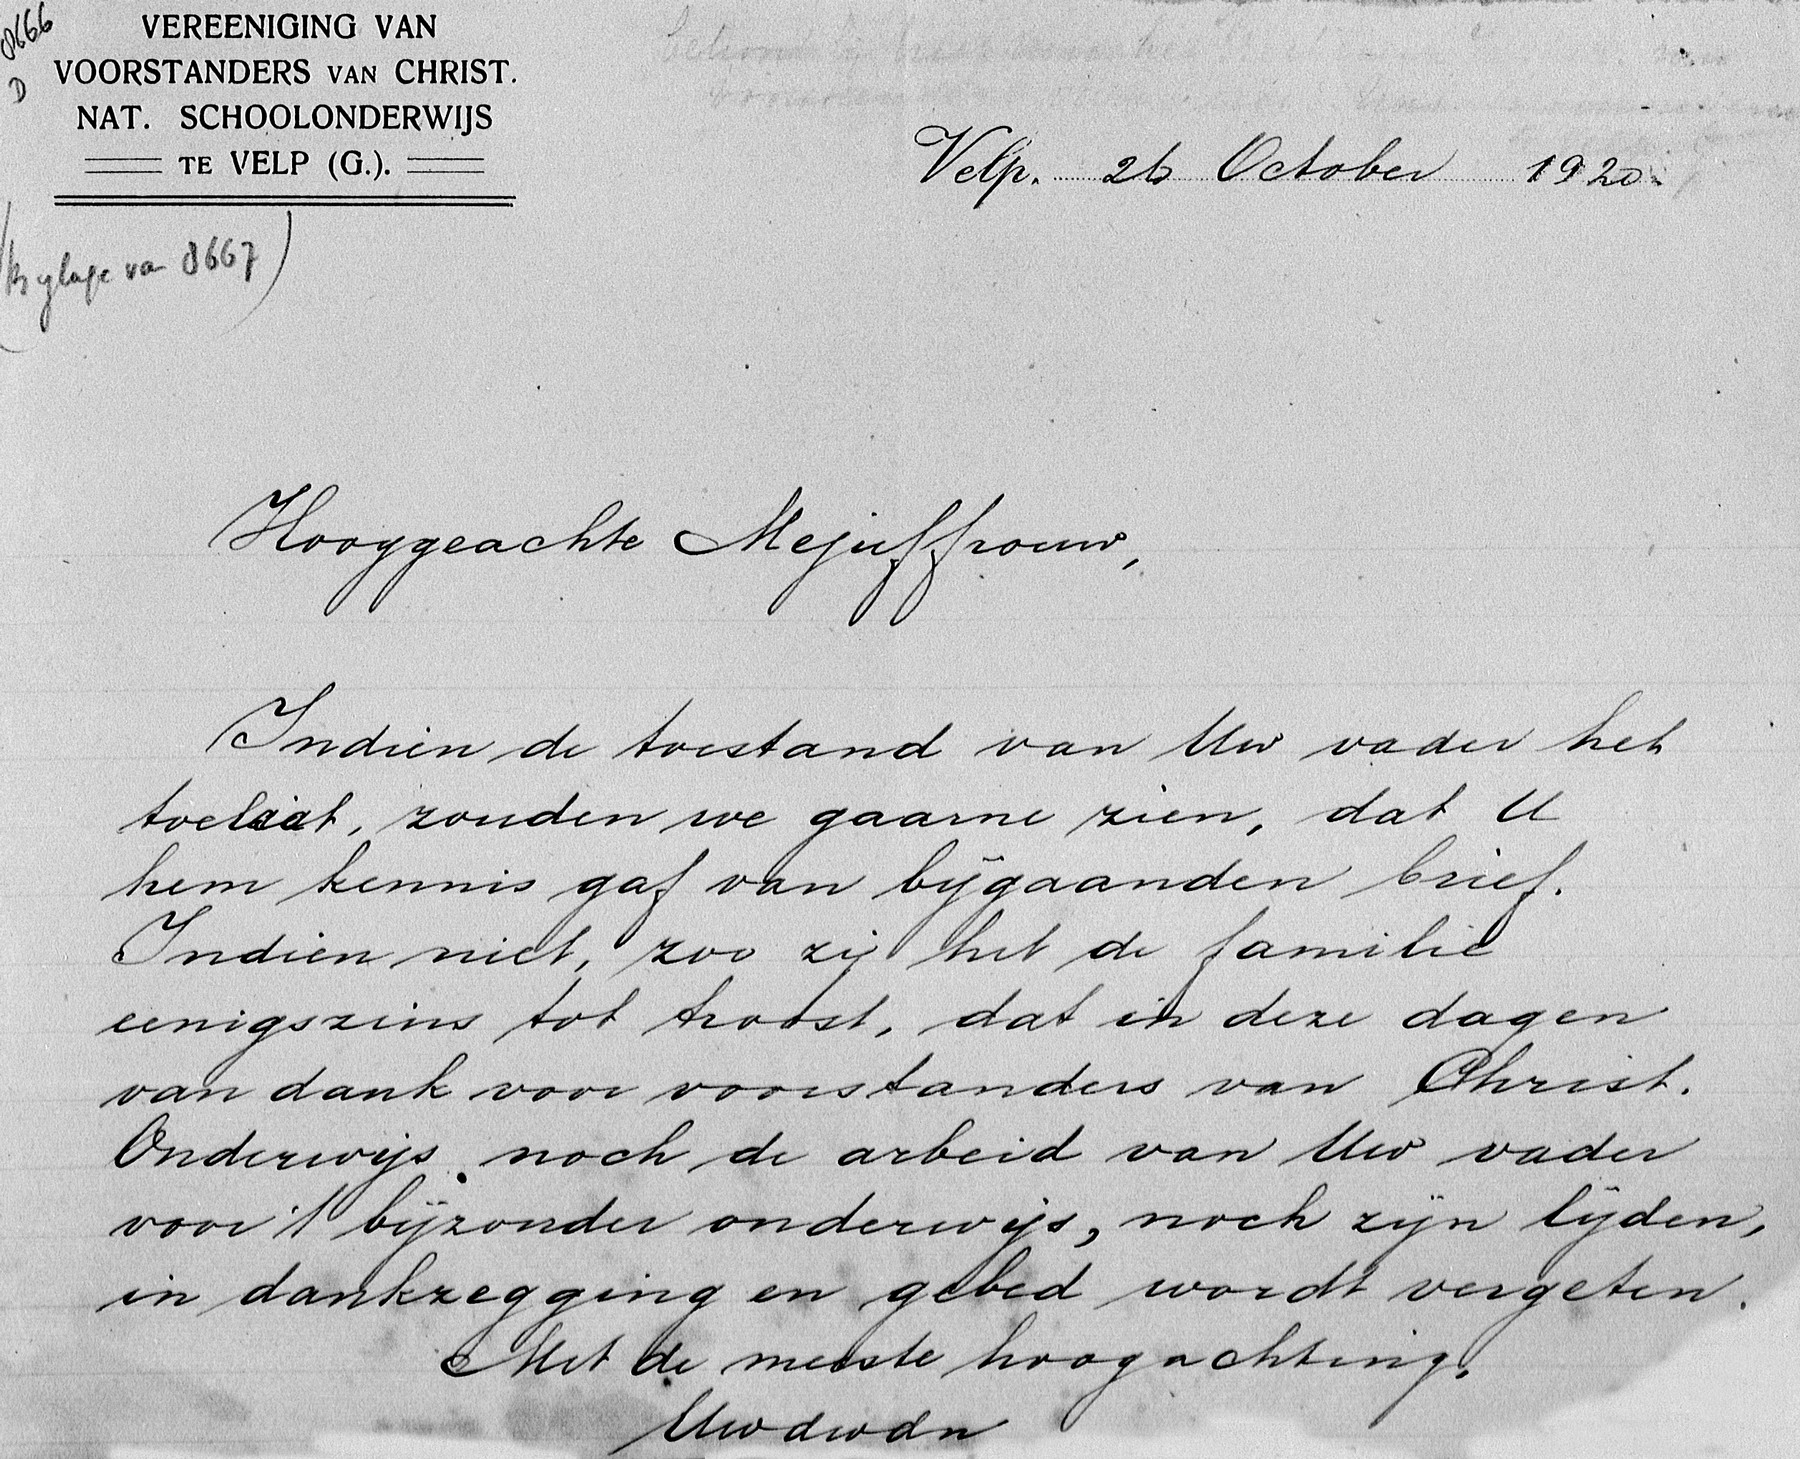 8666
D
VEREENIGING VAN
VOORSTANDERS VAN CHRIST.
NAT. SCHOOLONDERWIJS
TE VELP (G.).
(Bylage van 8667)
Velp. 26 October 1920.
Hooggeachte Mejuffrouw,
Indien de toestand van Uw vader het
toelaat, zouden we gaarne zien, dat U
hem kennis gaf van bijgaanden brief.
Indien niet, zoo zij het de familie
eenigszins tot troost, dat in deze dagen
van dank voor voorstanders van Christ.
Onderwijs, noch de arbeid van Uw vader
voor 't bijzonder onderwijs, noch zijn lijden,
in dankzegging en gebed wordt vergeten.
Met de meeste hoogachting,
Uwdwdn